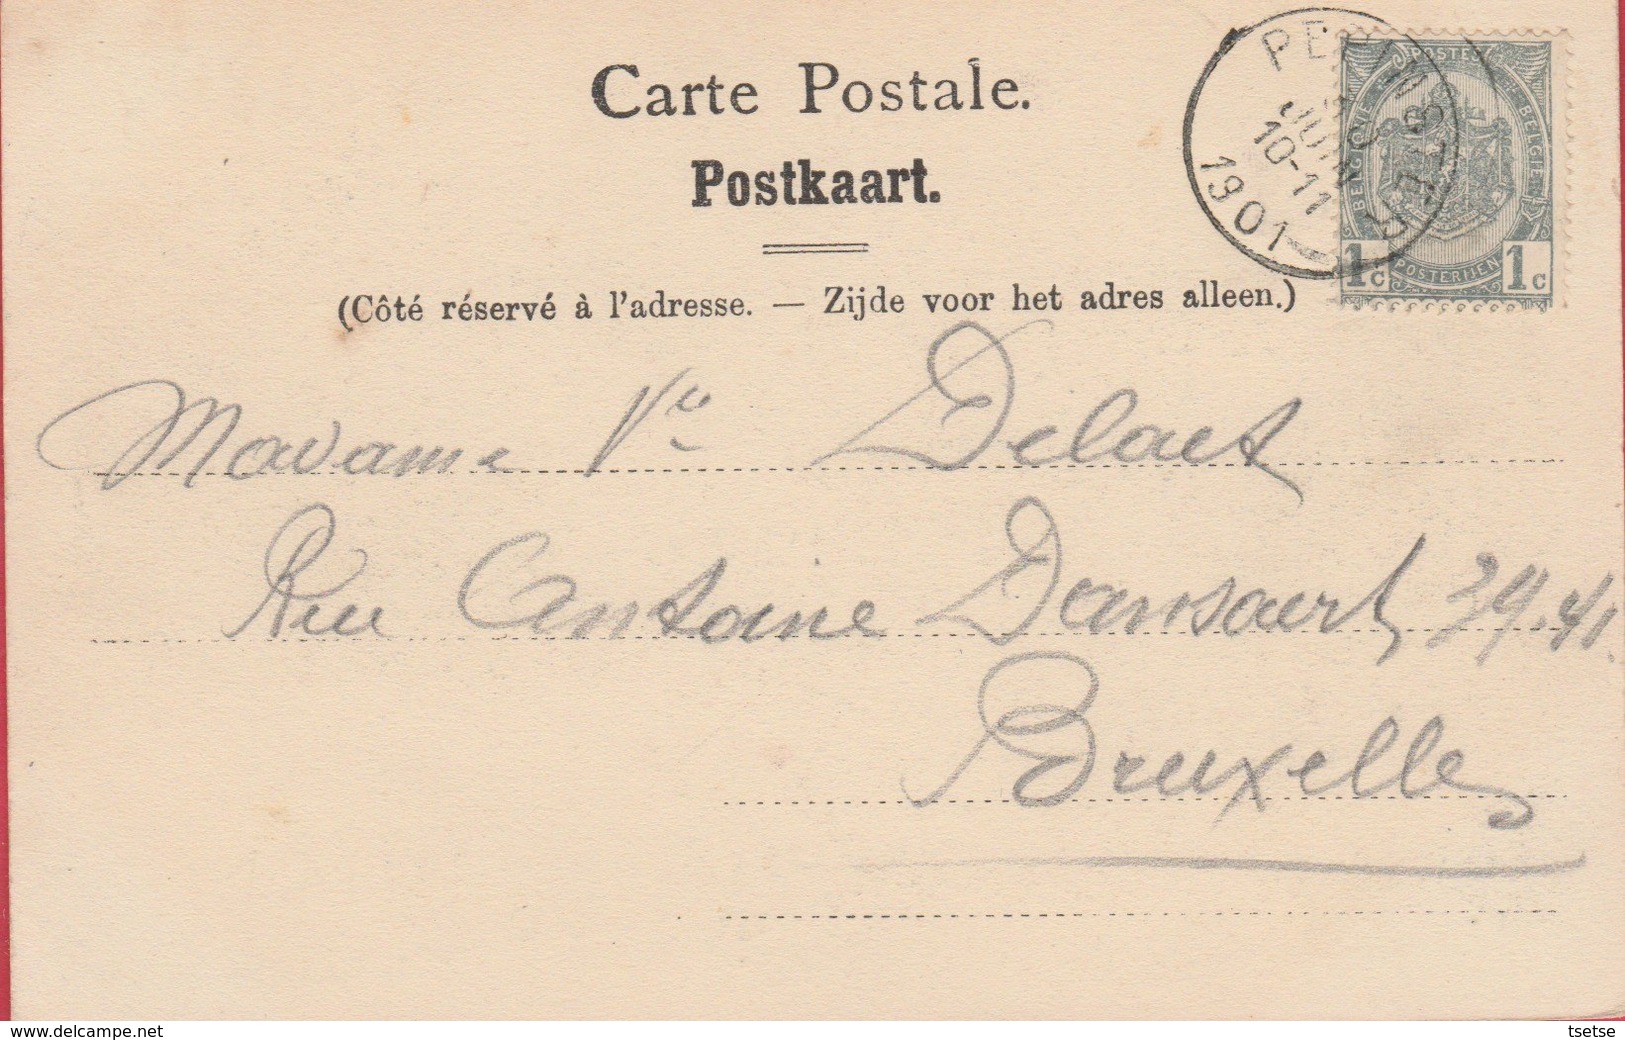 Carte Postale.
Postkaart.
(Côté réservé à l'adresse. — Zijde voor het adres alleen.)
PEPINSTER
JUIN
10-11
1901
POSTES
BELGIQUE
BELGIË
POSTERIJEN
1c 1c
Madame Vve Delaet
Rue Antoine Dansaert 39-41.
Bruxelles
www.delcampe.net
tsetse